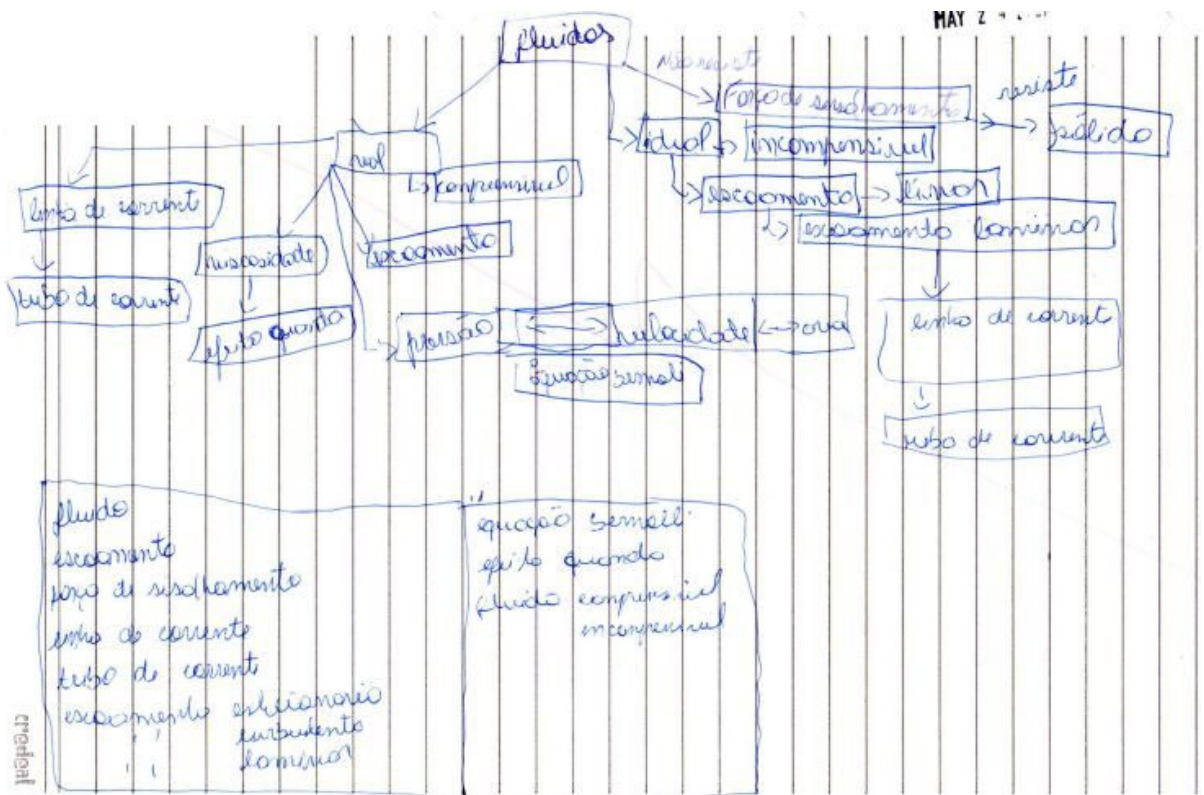 MAY 2
fluidos
Não resiste
Força de sisalhamento
resiste
sólido
ideal
incompensivel
real
comprensivel
escoamento
linear
escoamento laminar
linha de corrente
viscosidade
escoamento
tubo de corrente
efeito quanda
pressão
velocidade
área
Equação bernoli
linha de corrent
tubo de corrente
fluido
escoamento
força de sisalhamento
linha de corrente
tubo de corrente
escoamento estacionario
" turbulento
" laminar
equação bernolli
efeito quando
fluido comprensivel
incompensivel
credeal